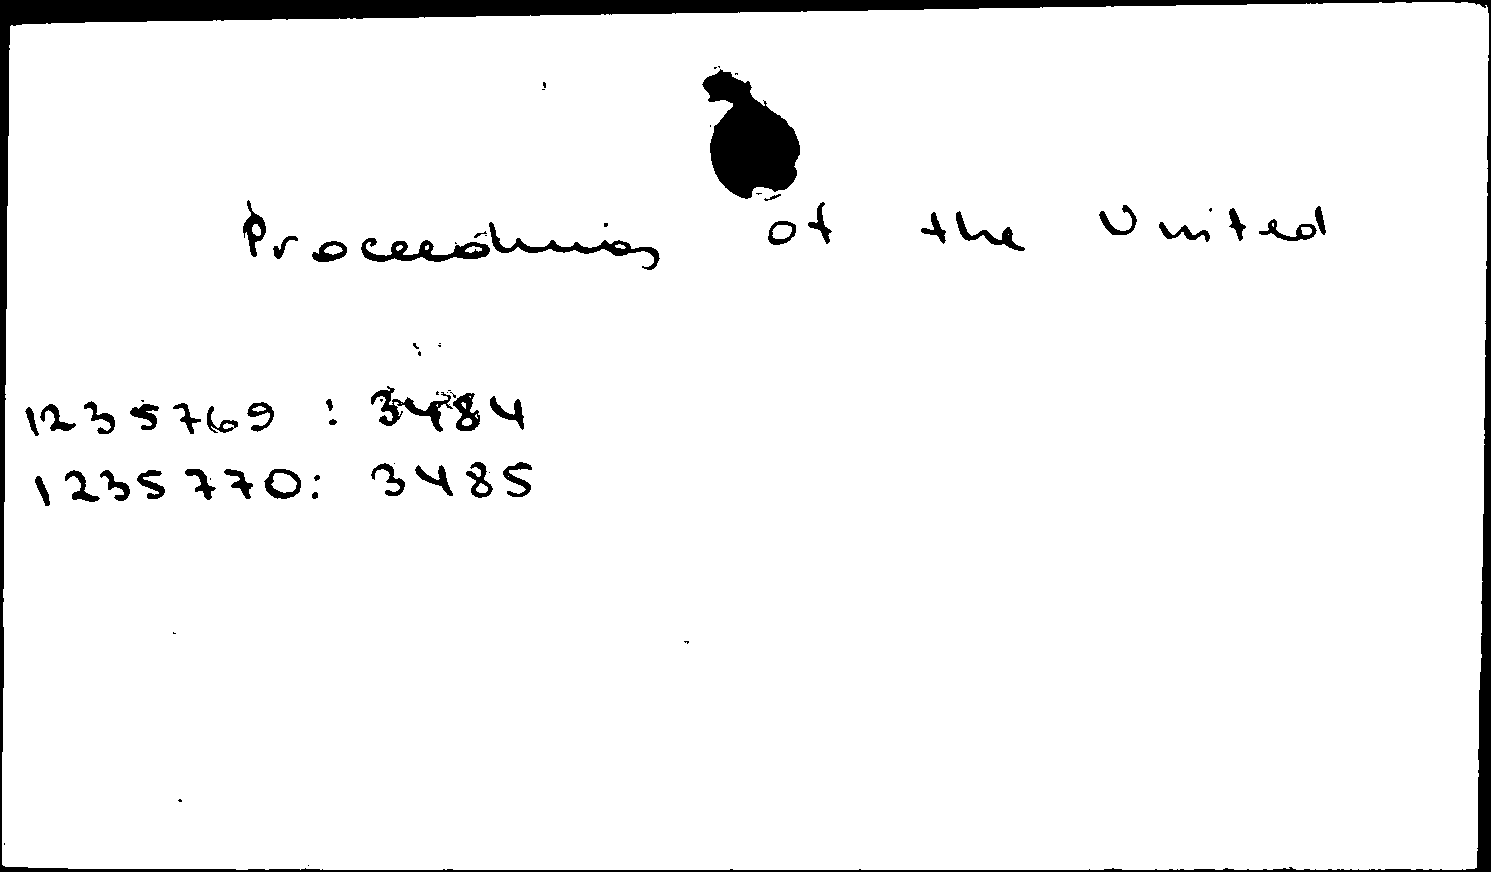 Proceedings of the United
1235769 : 3484
1235770: 3485